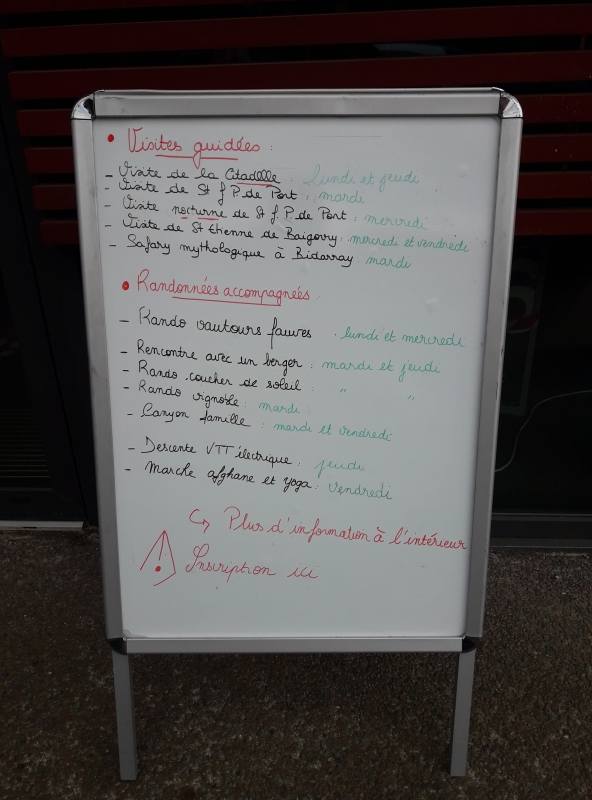 • Visites guidées :
- Visite de la Citadelle : lundi et jeudi
- Visite de St J. P. de Port : mardi
- Visite nocturne de St J. P. de Port : mercredi
- Visite de St Etienne de Baigorry : mercredi et vendredi
- Safary mythologique à Bidarray : mardi
• Randonnées accompagnées :
- Rando vautours fauves : lundi et mercredi
- Rencontre avec un berger : mardi et jeudi
- Rando coucher de soleil : " "
- Rando vignoble : mardi
- Canyon famille : mardi et vendredi
- Descente VTT électrique : jeudi
- Marche afghane et yoga : vendredi
↪ Plus d'information à l'intérieur
! Inscription ici